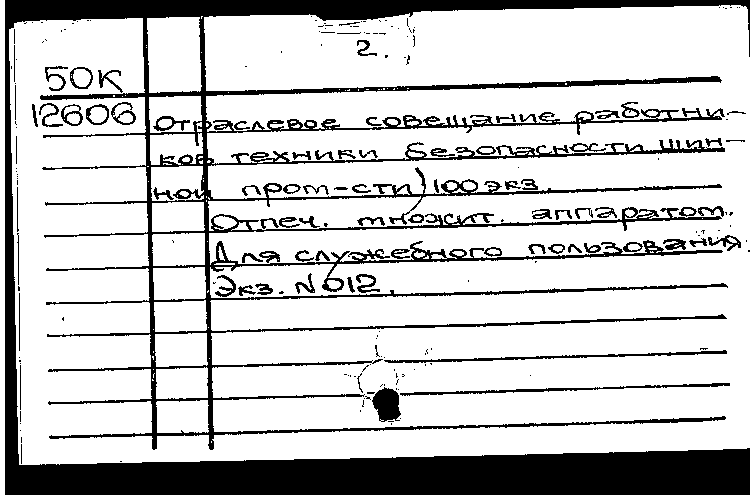 2.
50К
12606 Отраслевое совещание работни-
ков техники безопасности шин-
ной пром-сти) 100 экз.
Отпеч. множит. аппаратом.
Для служебного пользования
Экз. N 012.